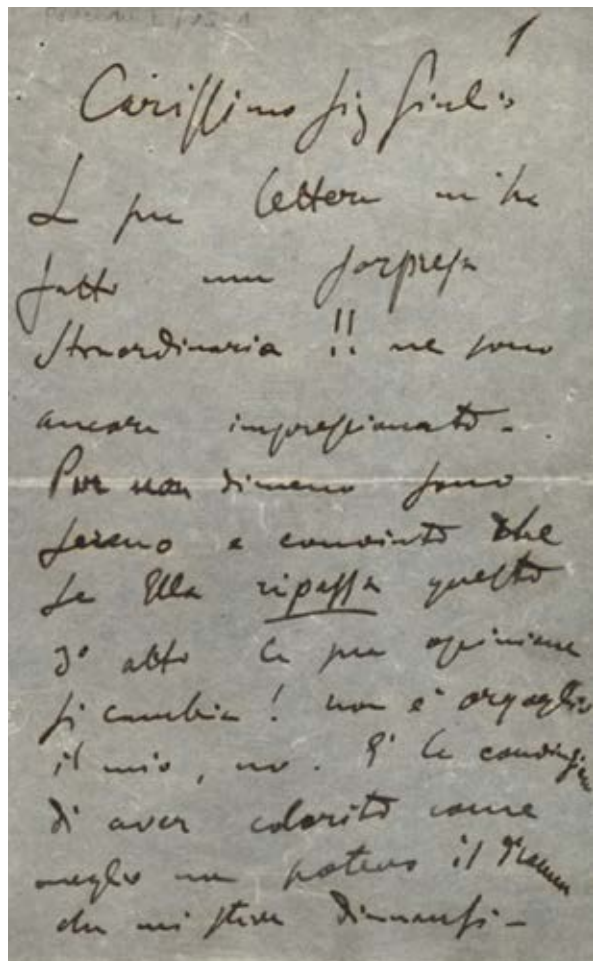 1
Carissimo Sig Giulio
La sua lettera mi ha
fatto una sorpresa
straordinaria !! ne sono
ancora impressionato -
Pur non dimeno sono
sereno e convinto che
se Ella ripassa questo
3º atto la sua opinione
si cambia ! non è orgoglio
il mio, no. E' la convinzione
di aver colorito come
meglio non potevo il dramma
che mi stava dinnansi -